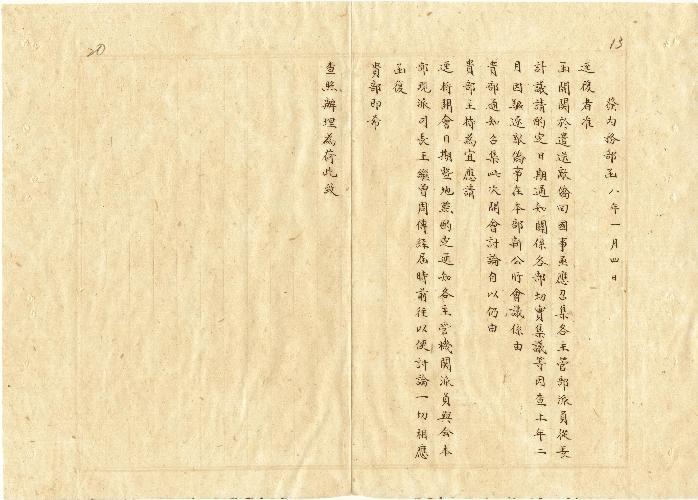 13
發內務部函 八年一月四日
逕復者准
函開關於遣送敵僑回國事亟應召集各主管部派員從長
計議請酌定日期通知關係各部切實集議等因查上年二
月因驅逐敵僑事在本部新公所會議係由
貴部通知召集此次開會討論自以仍由
貴部主持為宜應請
逕將開會日期暨地點酌定通知各主管機關派員與會本
部現派司長王繼曾周傳經屆時前往以便討論一切相應
函復
貴部即希
查照辦理為荷此致
20